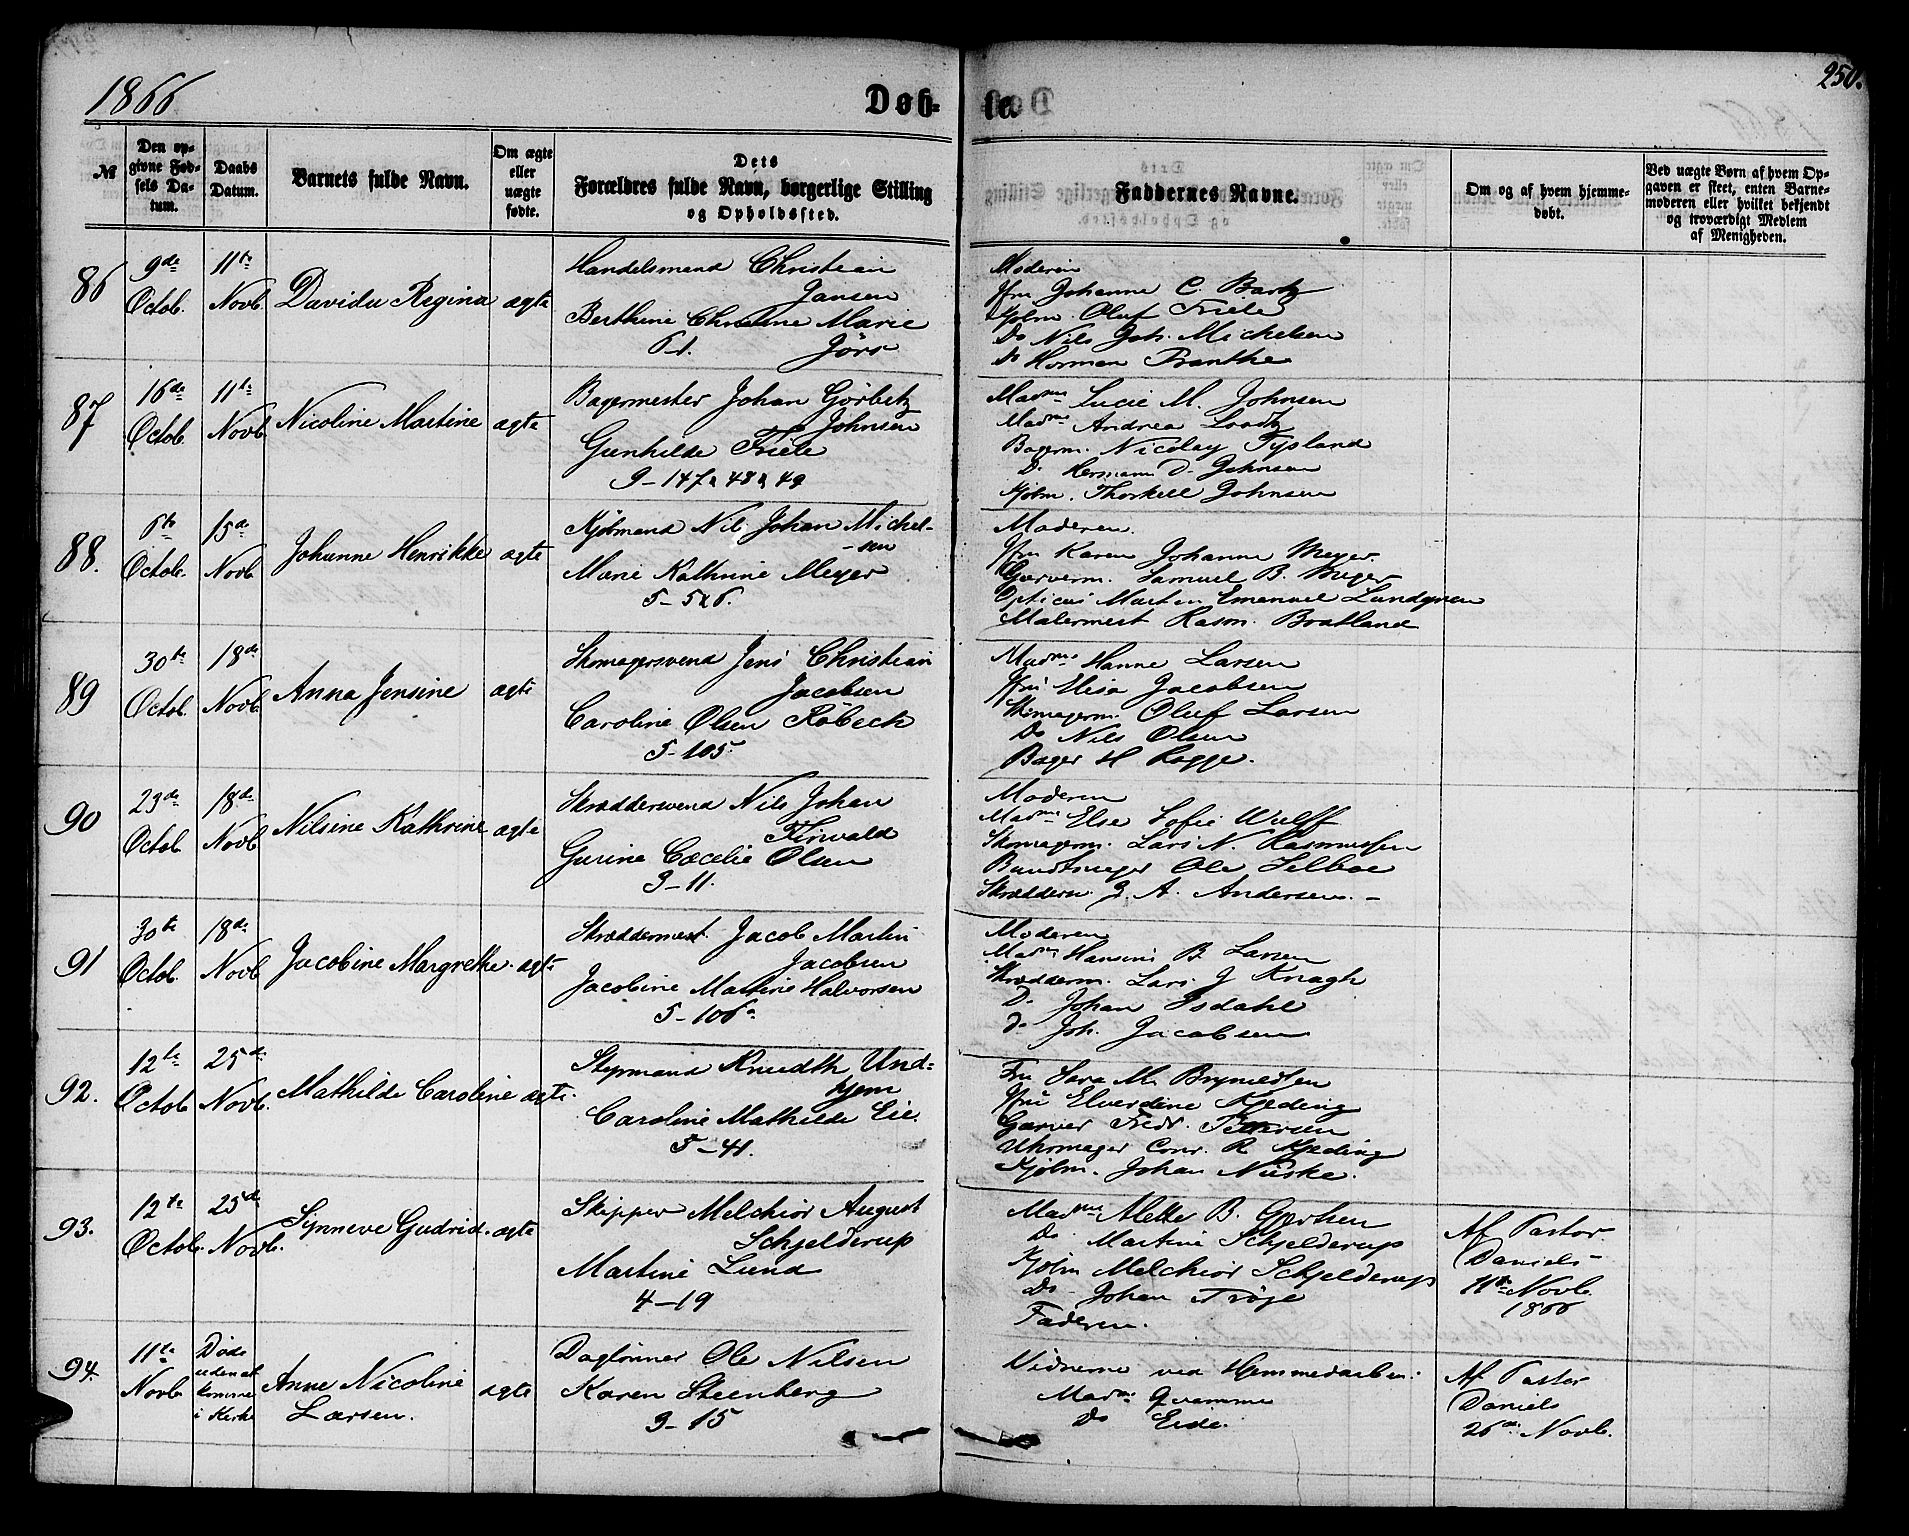 1866
Døb-
te.
250.
№
Den op-
givne Fød-
sels Da-
tum.
Daabs
Datum.
Barnets fulde Navn.
Om ægte
eller
uægte
fødte.
Dets
Forældres fulde Navn, borgerlige Stilling
og Opholdssted.
Faddernes Navne.
Om og af hvem hjemme-
døbt.
Ved uægte Børn af hvem Op-
gaven er skeet, enten Barne-
moderen eller hvilket bekjendt
og troværdigt Medlem
af Menigheden.
86
9de
Octob.
11te
Novb.
Davida Regina
ægte
Handelsmand Christian
Jansen
Berthine Christine Marie
6-1. Jörs
Moderen
Jfru Johanne C. Bartz
Kjöbm. Oluf Friele
Do Nils Joh. Michelsen
Do Herman Franthe
87
16de
Octob.
11te
Novb.
Nicoline Martine
ægte
Bagermester Johan Görbitz
Johnsen
Gunhilde Friele
9-147a 48a 49
Madme Lucie M. Johnsen
Madme Andrea Loodtz
Bagerm. Nicolay Tysland
Do Hermann D. Johnsen
Kjöbm. Thorkell Johnsen
88.
6te
Octob.
15de
Novb.
Johanne Henrikke
ægte
Kjöbmand Nil. Johan Michel-
-sen
Marie Kathrine Meyer
5-5a6.
Moderen.
Jfru Karen Johanne Meyer.
Garverm. Samuel B. Meyer
Opticus Martin Emanuel Lundgreen
Malermest Rasm. Bratland
89
30te
Octob.
18de
Novb.
Anna Jensine
ægte
Skomagersvend Jens Christian
Jacobsen
Caroline Olsen Röbeck
5-105.
Madme Hanne Larsen
Jfru Elisa Jacobsen
Skomagerm. Oluf Larsen
Do Nils Olsen
Bager H Rogge.
90
23de
Octob.
18de
Novb.
Nilsine Kathrine
ægte
Skræddersvend Nils Johan
Finvald
Gurine Cæcelie Olsen
3-11.
Moderen
Madme Else Sofie Wulff
Skomagerm. Lars N. Rasmussen
Bundtmager Ole Selboe
Skrædderm. J. A. Andersen. -
91
30te
Octob.
18de
Novb.
Jacobine Margrethe.
ægte
Skræddermest. Jacob Martin
Jacobsen
Jacobine Martine Halvorsen
5-106a
Moderen
Madme Hansine B Larsen
Skrædderm. Lars J Knagh
Do Johan Isdahl
do Joh. Jacobsen
92.
12te
Octob.
25de
Novb.
Mathilde Caroline
ægte.
Styrmand Knudth Und-
hjem
Caroline Mathilde Eie.
5-41.
Fru Sara M. Brynildsen
Jfru Elverdine Kjeding
Garver Fredr. Pettersen
Uhrmager Conr. R. Kjeding
Kjöbm. Johan Nüske.
93.
12te
Octob.
25de
Novb.
Synneve Gudrid.
ægte
Skipper Melchior August
Schjelderup
Martine Lund
4-19
Madme Mette B. Gjertsen
Do. Martine Schjelderup
Kjöbm Melchior Schjelderup
Do. Johan Tröje
Faderen.
Af Pastor
Daniels-
11te Novb.
1866
94.
11te
Novb.
Døde
uden at
komme
i Kirke
Anne Nicoline
Larsen.
ægte
Daglönner Ole Nilsen
Karen Steenberg
3-15
Vidnerne ved Hjemmedaaben:
Madme Qvamme
Do Eide.
Af Pastor
Daniels
26de Novb.